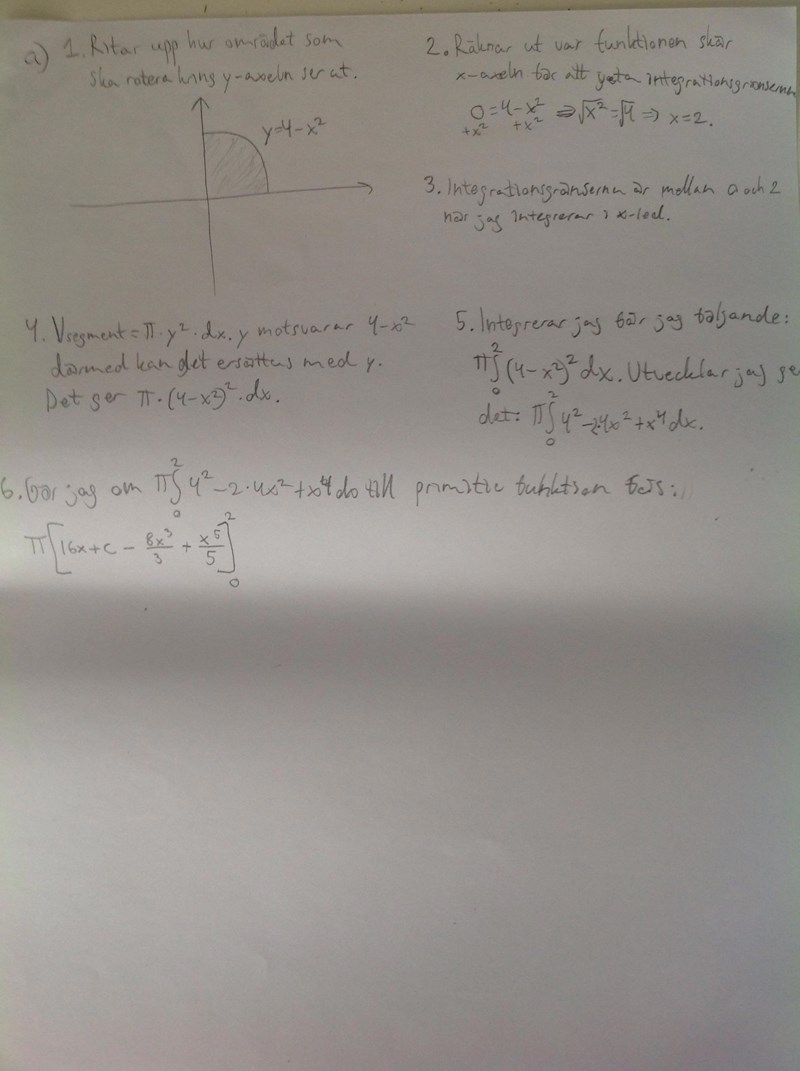 a) 1. Ritar upp hur området som
ska rotera kring y-axeln ser ut.
y=4-x²
2. Räknar ut var funktionen skär
x-axeln för att veta integrationsgränserna
0=4-x² ⇒ √x²=√4 ⇒ x=2.
+x² +x²
3. Integrationsgränserna är mellan 0 och 2
när jag integrerar i x-led.
4. Vsegment=π·y²·dx. y motsvarar 4-x²
därmed kan det ersättas med y.
Det ger π·(4-x²)²·dx.
5. Integrerar jag får jag följande:
π∫₀²(4-x²)²dx. Utvecklar jag ger
det: π∫₀² 4²-2·4x²+x⁴dx.
6. Gör jag om π∫₀² 4²-2·4x²+x⁴dx till primitiv funktion fås:
π[16x+c-8x³/3+x⁵/5]₀²